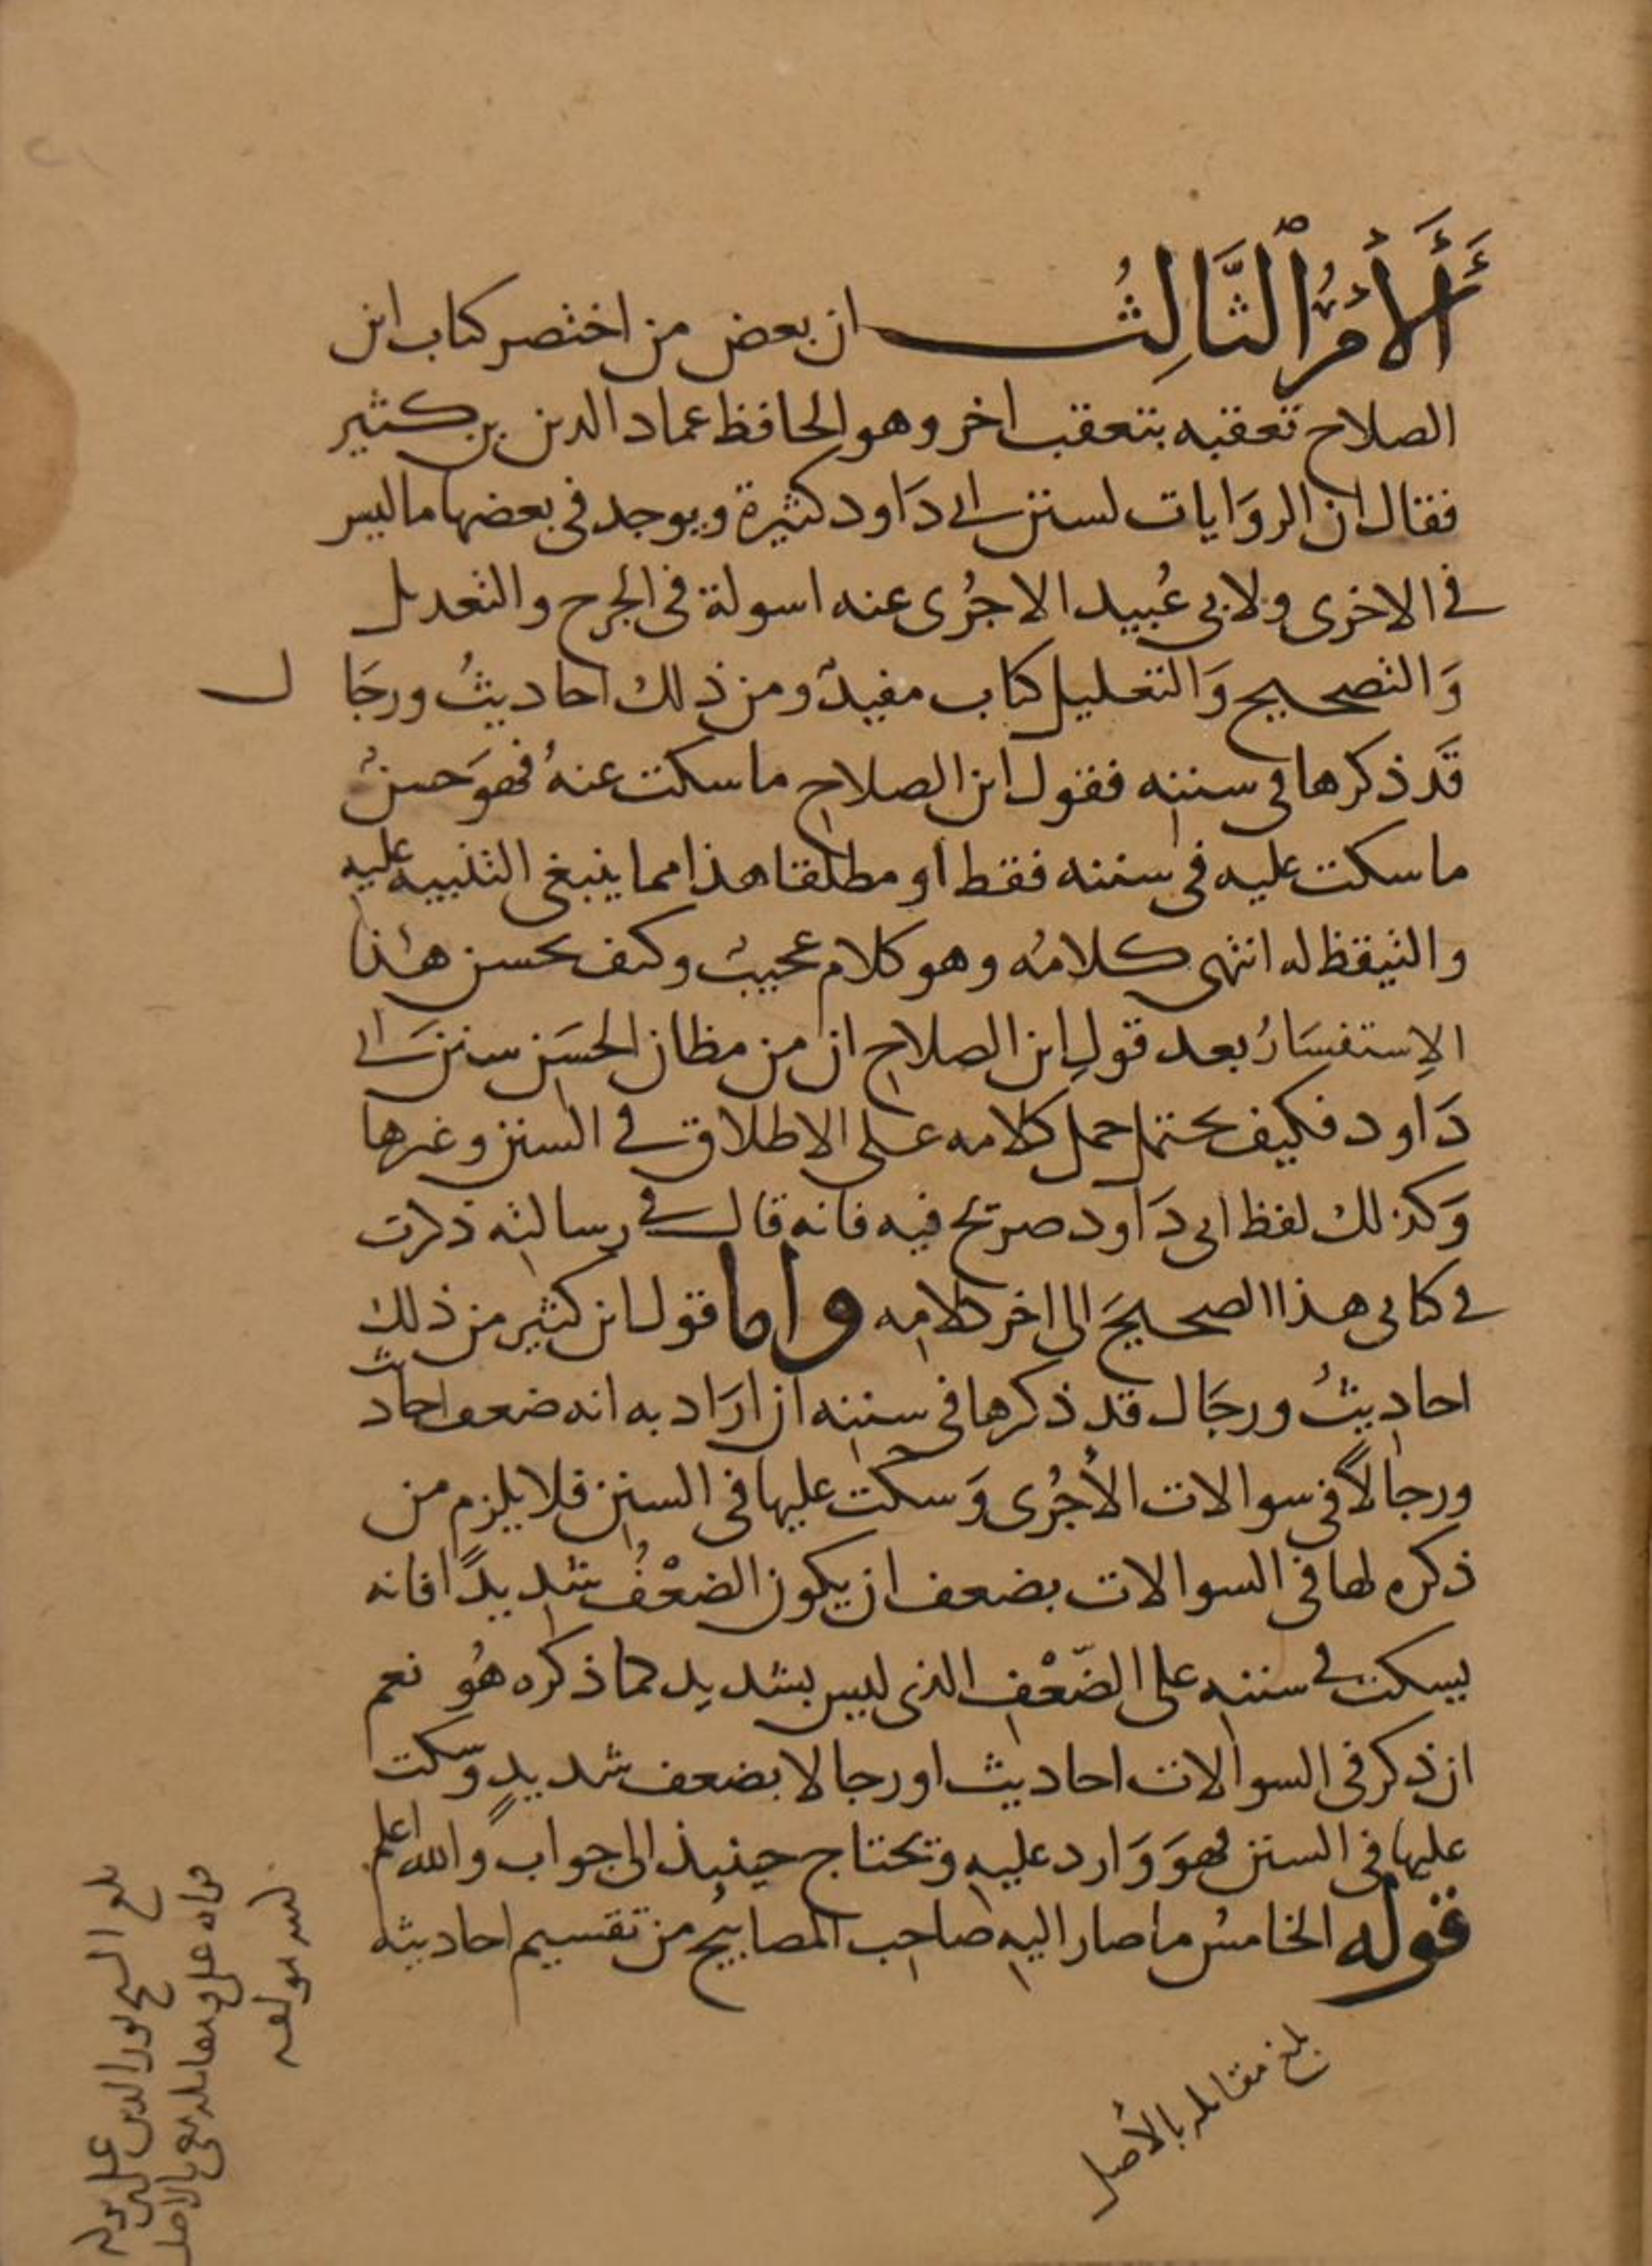 أَلأَمْرُ ٱلثَّالِثُ ان بعض من اختصر كتاب ابن
الصلاح تعقبه بتعقب اخر وهو الحافظ عماد الدين بن كثير
فقال ان الروَايات لسنن ابي دَاود كثيرة ويوجد في بعضها ما ليس
في الاخرى ولابي عُبيد الاجُرى عنه اسولة في الجرح والتعديل
وَالتصحيح وَالتعليل كتاب مفيدٌ ومن ذلك احاديثُ ورجَال
قَد ذكرها في سننه فقول ابن الصلاح ما سكت عنهُ فهوَ حسنٌ
ما سكت عليه في سننه فقط او مطلقا هذا مما ينبغي التنبيه عليه
والتيقظ له انتهى كلامُه وهو كلام عجيبٌ وكيف يحسن هذا
الاِستفسَارُ بعد قولِ ابن الصلاح ان من مظان الحسَن سننَ ابي
دَاود فكيف يحتمل حمل كلامه على الاطلاق في السنن وغيرها
وَكذلك لفظ ابي دَاود صريح فيه فانه قال في رسالته ذكرت
في كتابي هذا الصحيحَ الى اخر كلامِه واما قول ابن كثير من ذلك
احاديثُ ورجَال قد ذكرها في سننه ان ارَاد به انه ضعف احاديث
ورجالاً في سوالات الأجُرى وَسكت عليها في السنن فلا يلزم من
ذكره لها في السوالات بضعف ان يكون الضعْفُ شديدًا فانه
يسكت في سننه على الضّعْفِ الذى ليس بشديد كما ذكره هُو نعم
ان ذكر في السوالات احاديث او رجالا بضعف شديدٍ وسكت
عليها في السنن فهوَ وَارد عليه وتحتاج حينئذ الى جواب والله اعلم
قوله الخامسُ ما صار اليه صاحب المصابيح من تقسيم احاديثه
بلغ مقابله بالأصل
بلغ الشيخ نور الدين على
قراه على ومقابله معى بالاصل
كتبه مولفه